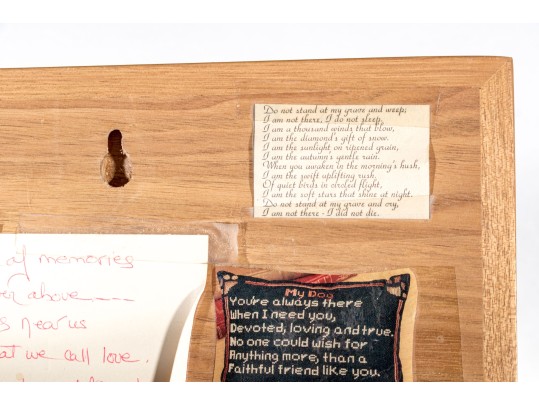 Do not stand at my grave and weep;
I am not there, I do not sleep.
I am a thousand winds that blow,
I am the diamond's gift of snow.
I am the sunlight on ripened grain,
I am the autumn's gentle rain.
When you awaken in the morning's hush,
I am the swift uplifting rush,
Of quiet birds in circled flight,
I am the soft stars that shine at night.
Do not stand at my grave and cry,
I am not there - I did not die.
of memories
above
near us
we call love.
My Dog
You're always there
When I need you,
Devoted, loving and true.
No one could wish for
Anything more, than a
Faithful friend like you.